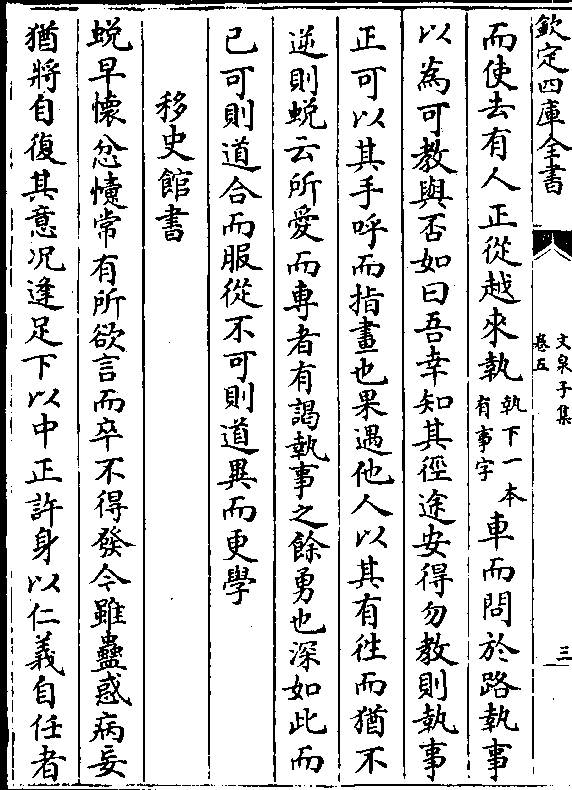 欽定四庫全書
文泉子集
卷五
三
而使去有人正從越來執執下一本有事字車而問於路執事
以為可教與否如曰吾幸知其徑途安得勿教則執事
正可以其手呼而指畫也果遇他人以其有徃而猶不
逆則蛻云所愛而專者有謁執事之餘勇也深如此而
已可則道合而服從不可則道異而更學
移史館書
蛻早懷忿憤常有所欲言而卒不得發今雖蠱惑病妄
猶將自復其意况逢足下以中正許身以仁義自任者